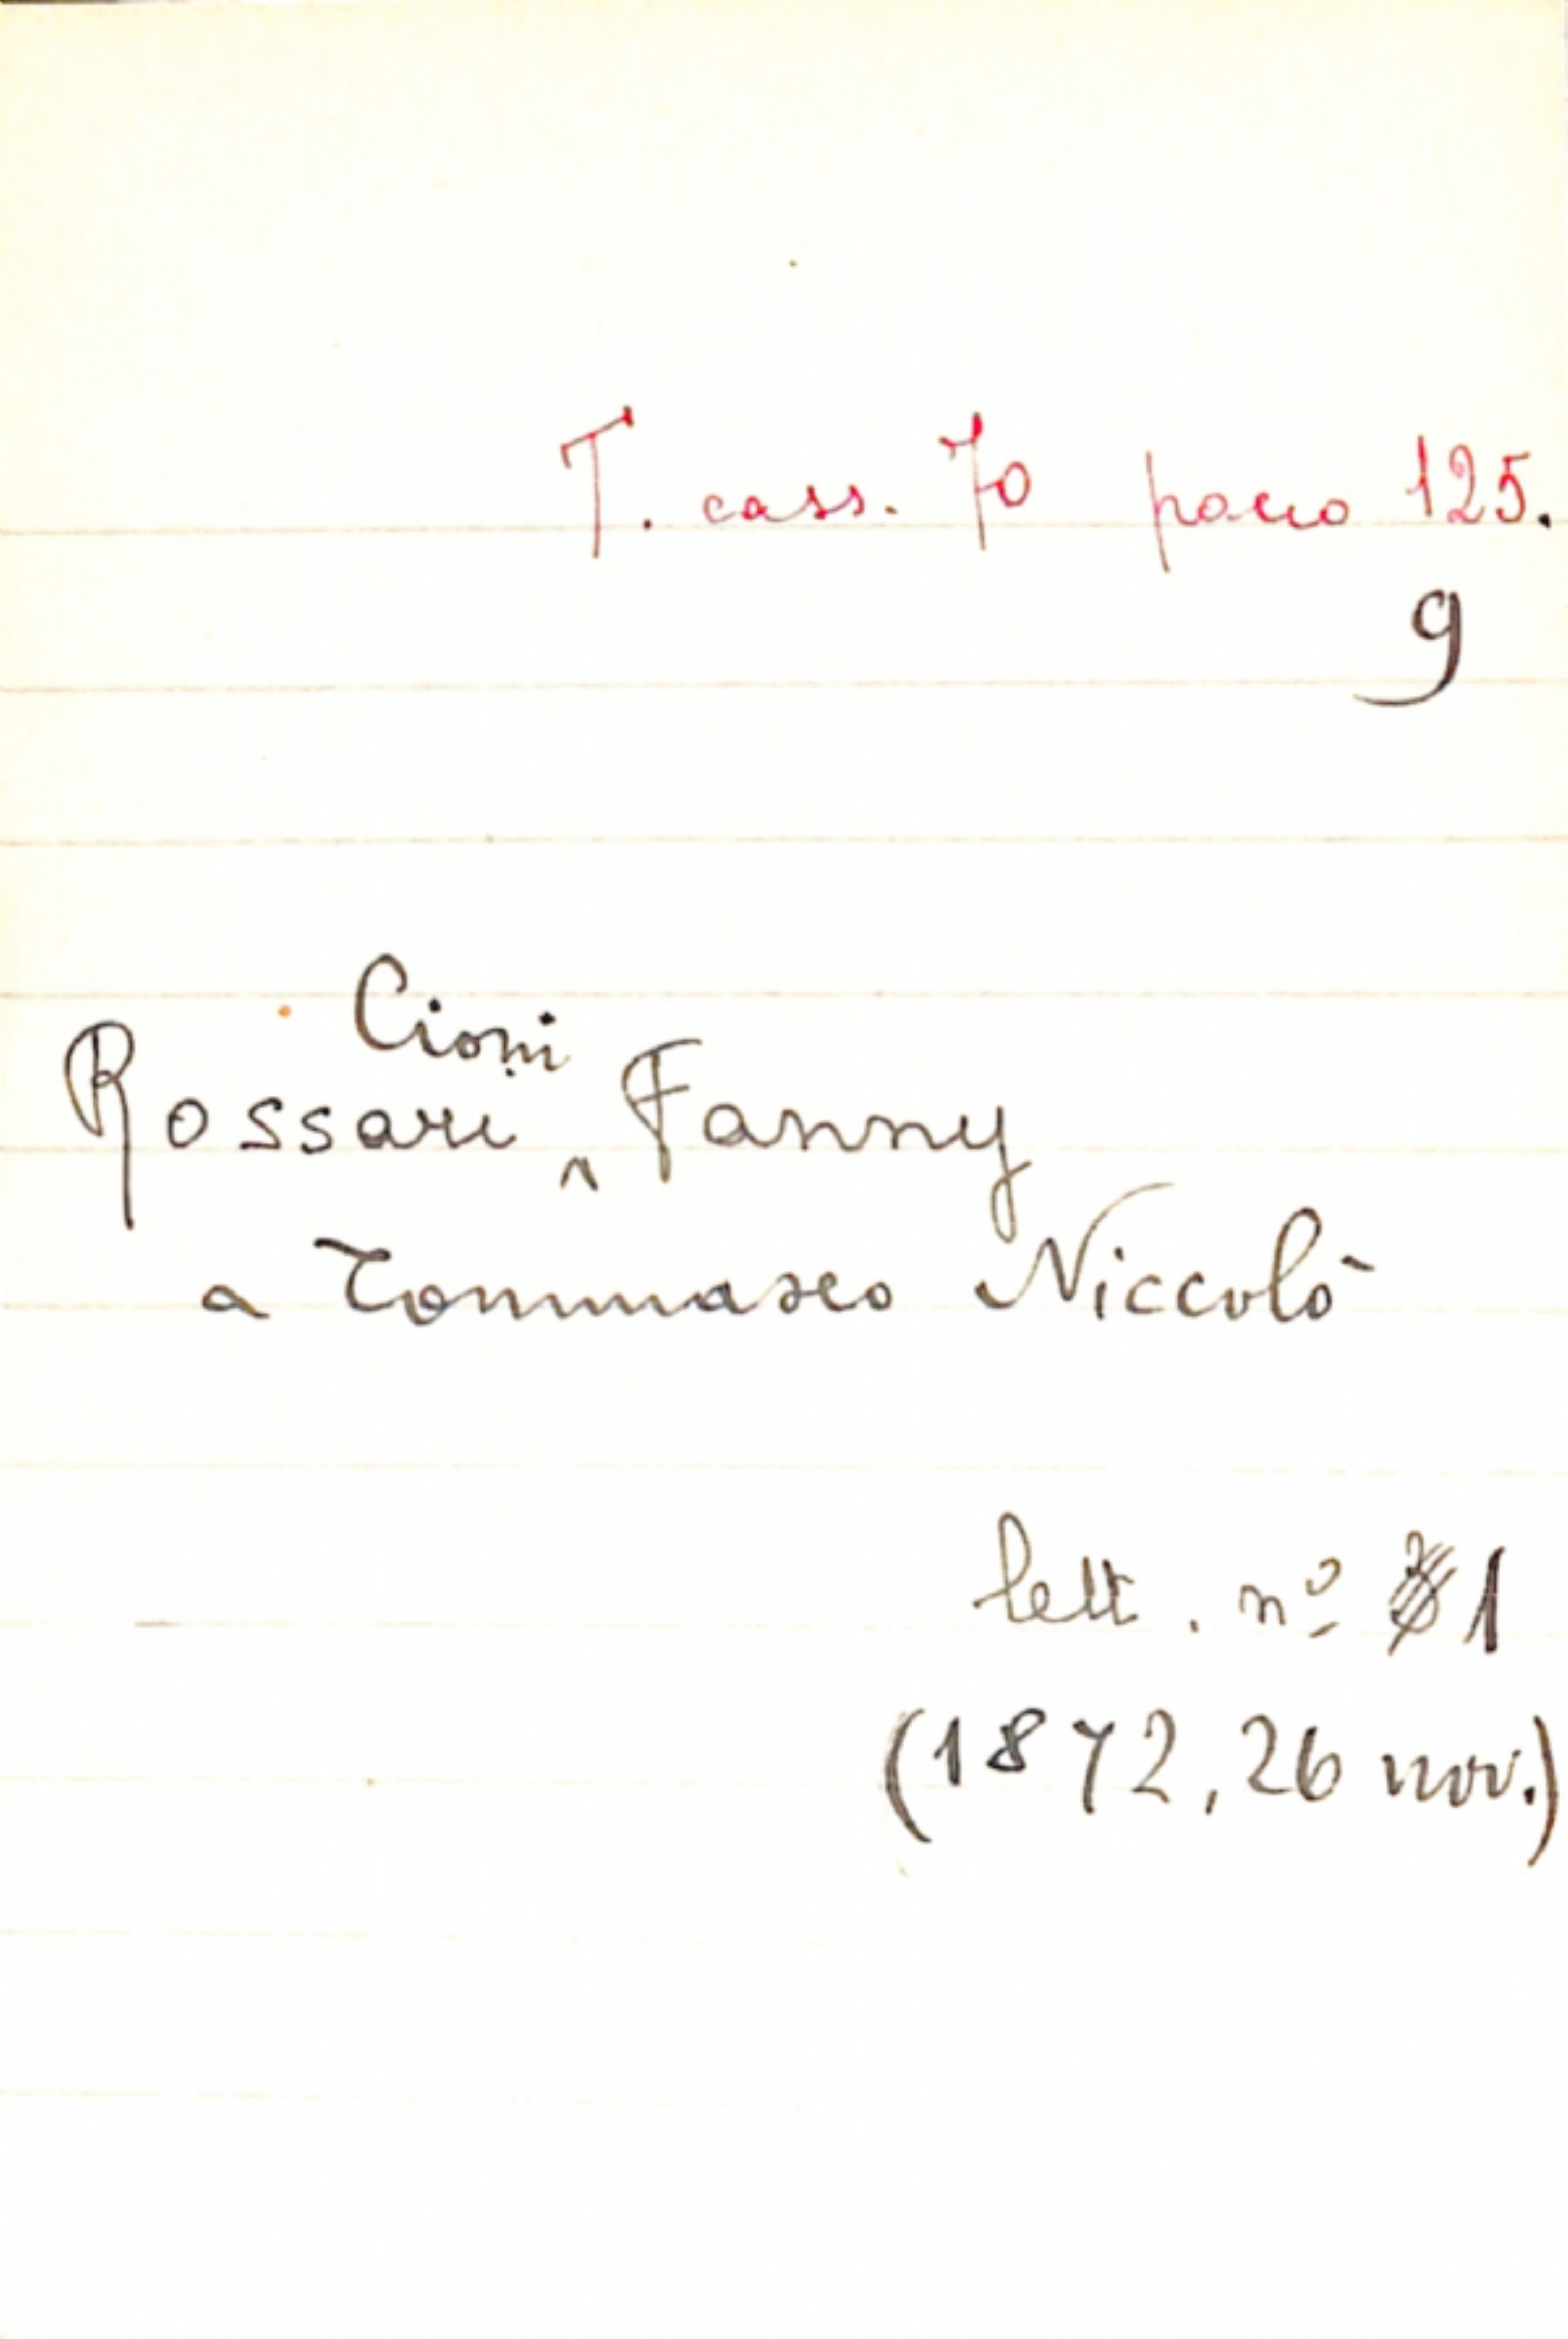 T. cass. 70 pacco 125.
9
Cioni
Rossari ^ Fanny
a Tommaseo Niccolò
lett. nº 1
(1872, 26 nov.)